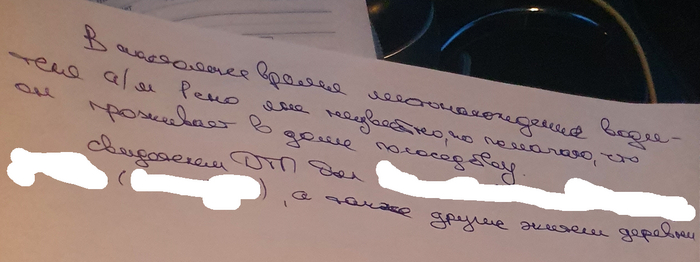 В настоящее время местонахождение води-
теля а/м Рено мне неизвестно, но полагаю, что
он проживает в доме по соседству.
Свидетелем ДТП был
( ), а также другие жители деревни